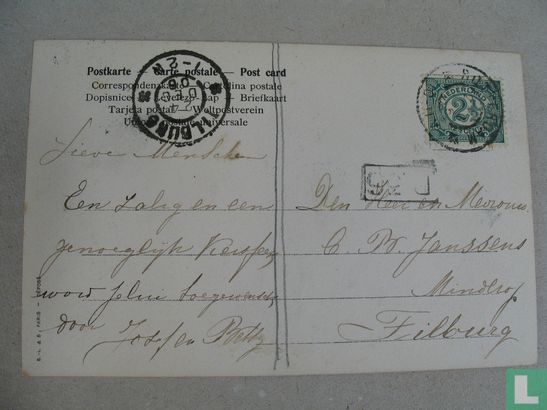 Postkarte — Carte postale — Post card
Correspondenzkarte — Cartolina postale
Dopisnice — Levelező-Lap — Briefkaart
Tarjeta postal — Weltpostverein
Union postale universale
TILBURG
1-2 N
NEDERLAND
2½
Lieve Menschen
Een zalig en een
genoeglijk Kersfeest
word jelui toegewenscht
door Jos en Betsy
Den Heer en Mevrouw
C. Janssens
Tilburg
PARIS
DÉPOSÉ
catawiki